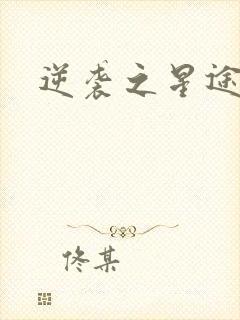 逆袭之星途
佟某